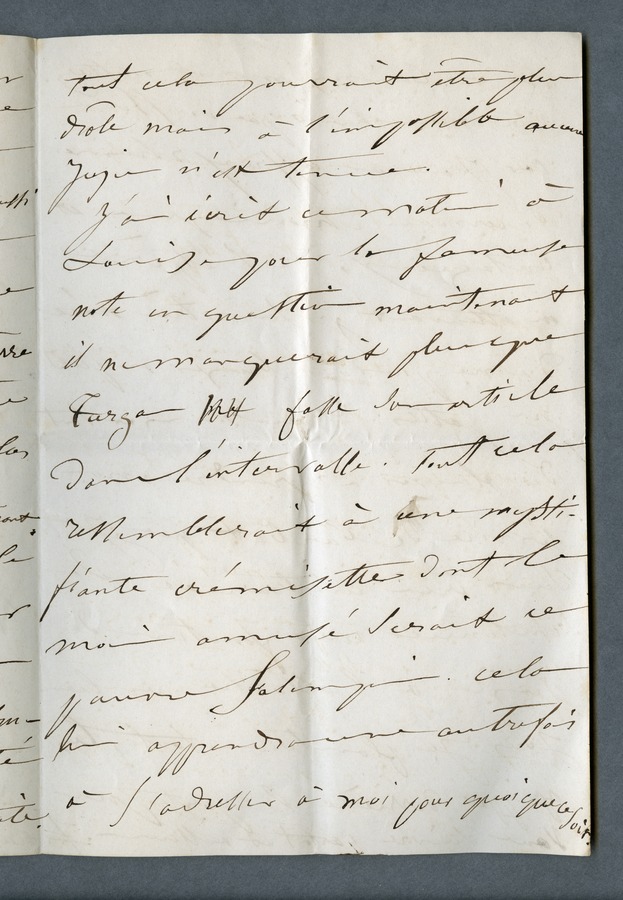 tout cela pourrait être plus
drôle mais à l'impossible aucun
n'est tenue.
J'ai écrit ce matin à
Louise pour la fameuse
note en question maintenant
il ne manquerait plus que
Turgan fasse son article
dans l'intervalle. tout cela
ressemblerait à une mysti-
fiante dont le
moins amusé serait ce
pauvre cela
lui apprendra une autrefois
à s'adresser à moi pour quoique ce soit.